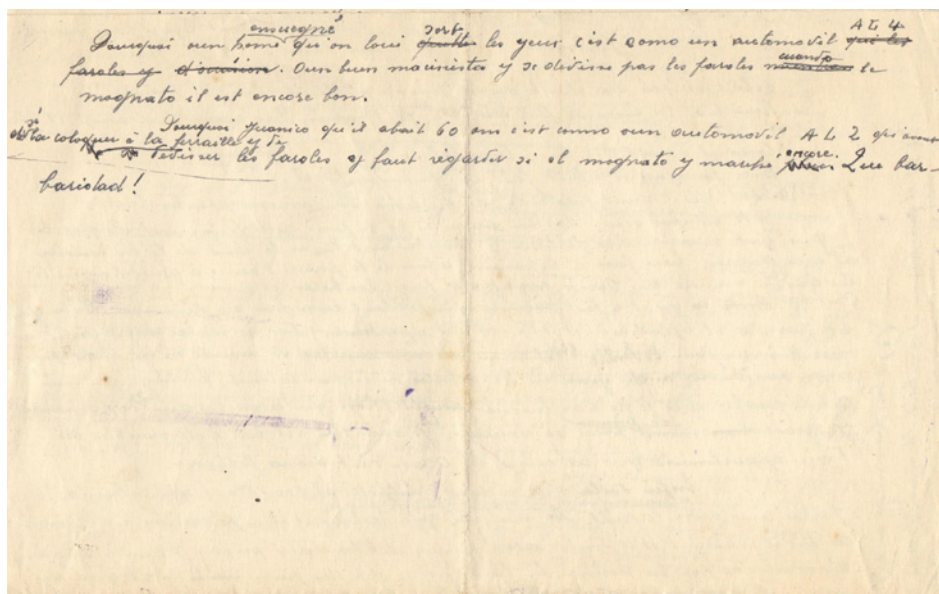 ensuegné sort A L 4
Pourquoi oun homé qu'on loui quitte les yeux c'est como un automovil qui les
faroles y d'occasion. Oun buen macinistes y se devisse pas les faroles cuando le
magnato il est encore bon.
Pourquoi Juanico qu'il abait 60 ans c'est como oun automovil A L 2 qui
la coloquer à la ferraille y de
devisser les faroles y faut régarder si el magnato y marche encore. Que bar-
baridad!